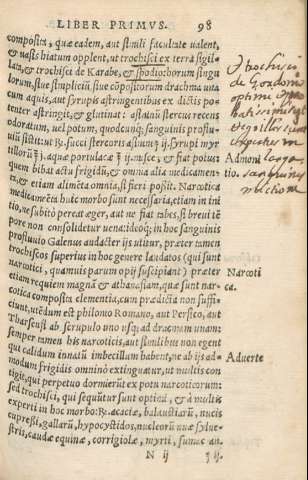 LIBER PRIMVS. 98
composita, quæ eadem, aut simili facultate ualent,
& uasis hiatum opplent, ut trochisci ex terra sigil-
lata, & trochisci de Karabe, & spodio: horum singu
lorum, siue simplicium siue cōpositorum drachma una
cum aquis, aut syrupis astringentibus ex dictis po-
tenter astringit, & glutinat: asininū stercus recens
odoratum, uel potum, quodcunq; sanguinis proflu-
uiū sistit: ut ℞. succi stercoris asini ʒ ij. syrupi myr
aquæ portulacæ misce, & fiat potus:
quem bibat actu frigidū, & omnia alia medicamen-
ta, & etiam alimēta omnia, si fieri possit. Narcotica
medicamēta huic morbo sunt necessaria, etiam in ini
tio, ne subitò pereat æger, aut ne fiat tabes, si breui tē
pore non consolidetur uena: ideoq; in hoc sanguinis
profluuio Galenus audacter ijs utitur, præter tamen
trochiscos superius in hoc genere laudatos (qui sunt
narcotici, quamuis parum opij suscipiant) præter
etiam requiem magnā & athanasiam, quæ sunt nar-
cotica composita clementia, cum prædicta non suffi-
ciunt, utēdum est philonio Romano, aut Persico, aut
Tharsensi ab scrupulo uno usq; ad dracmam unam:
semper tamen his narcoticis, aut similibus non egent
qui calidum innatū imbecillum habent, ne ab ijs ad-
modum frigidis omninò extinguatur, ut multis con
tigit, qui perpetuo dormierūt ex potu narcoticorum:
sed trochisci, qui sequūtur sunt optimi, & à multis
experti in hoc morbo: ℞. acaciæ, balaustiarū, nucis
cupressi, gallarū, hypocystidos, nucleorū uuæ sylue-
stris, caudæ equinæ, corrigiolæ, myrti, sumac an.
N ij ʒ ij.
trochisci
de Gordonii
optimi
Admoni
tio.
sanguinis
Narcoti
ca.
Aduerte